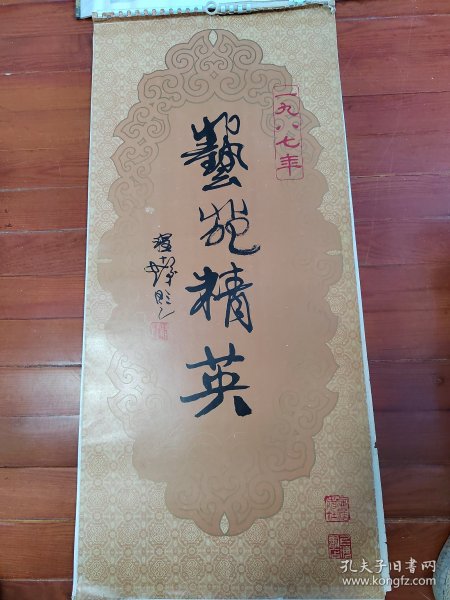 一九八七年
藝苑精英
孔夫子旧书网
www.kongfz.com